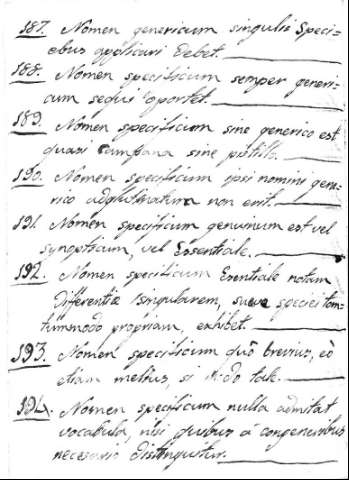 187. Nomen genericum singulis Speci=
ebus applicari debet.
188. Nomen specificum semper generi=
cum sequi oportet.
189. Nomen specificum sine generico est
quasi Campana sine pistillo.
190. Nomen specificum ipsi nomini gene=
rico adglutinatum non erit.
191. Nomen specificum genuinum est vel
synopticum, vel Essentiale.
192. Nomen specificum Essentiale notam
differentiæ singularem, suæve speciei tan=
tummodo propriam, exhibet.
193. Nomen specificum quò brevius, eò
etiam melius, si modo tale.
194. Nomen specificum nulla admittat
vocabula, nisi quibus à congeneribus
necesario distinguitur.